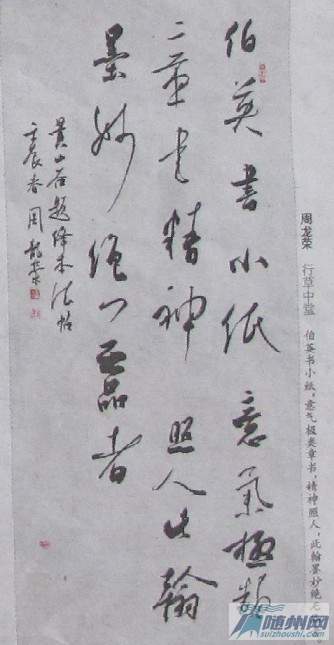 伯英书小纸意气极类
章书精神照人此翰
墨妙绝无品者
黄山谷题绛本法帖
壬辰春周龙荣
周龙荣 行草中堂
伯英书小纸，意气极类章书，精神照人，此翰墨妙绝无
随州网
suizhoushi.com